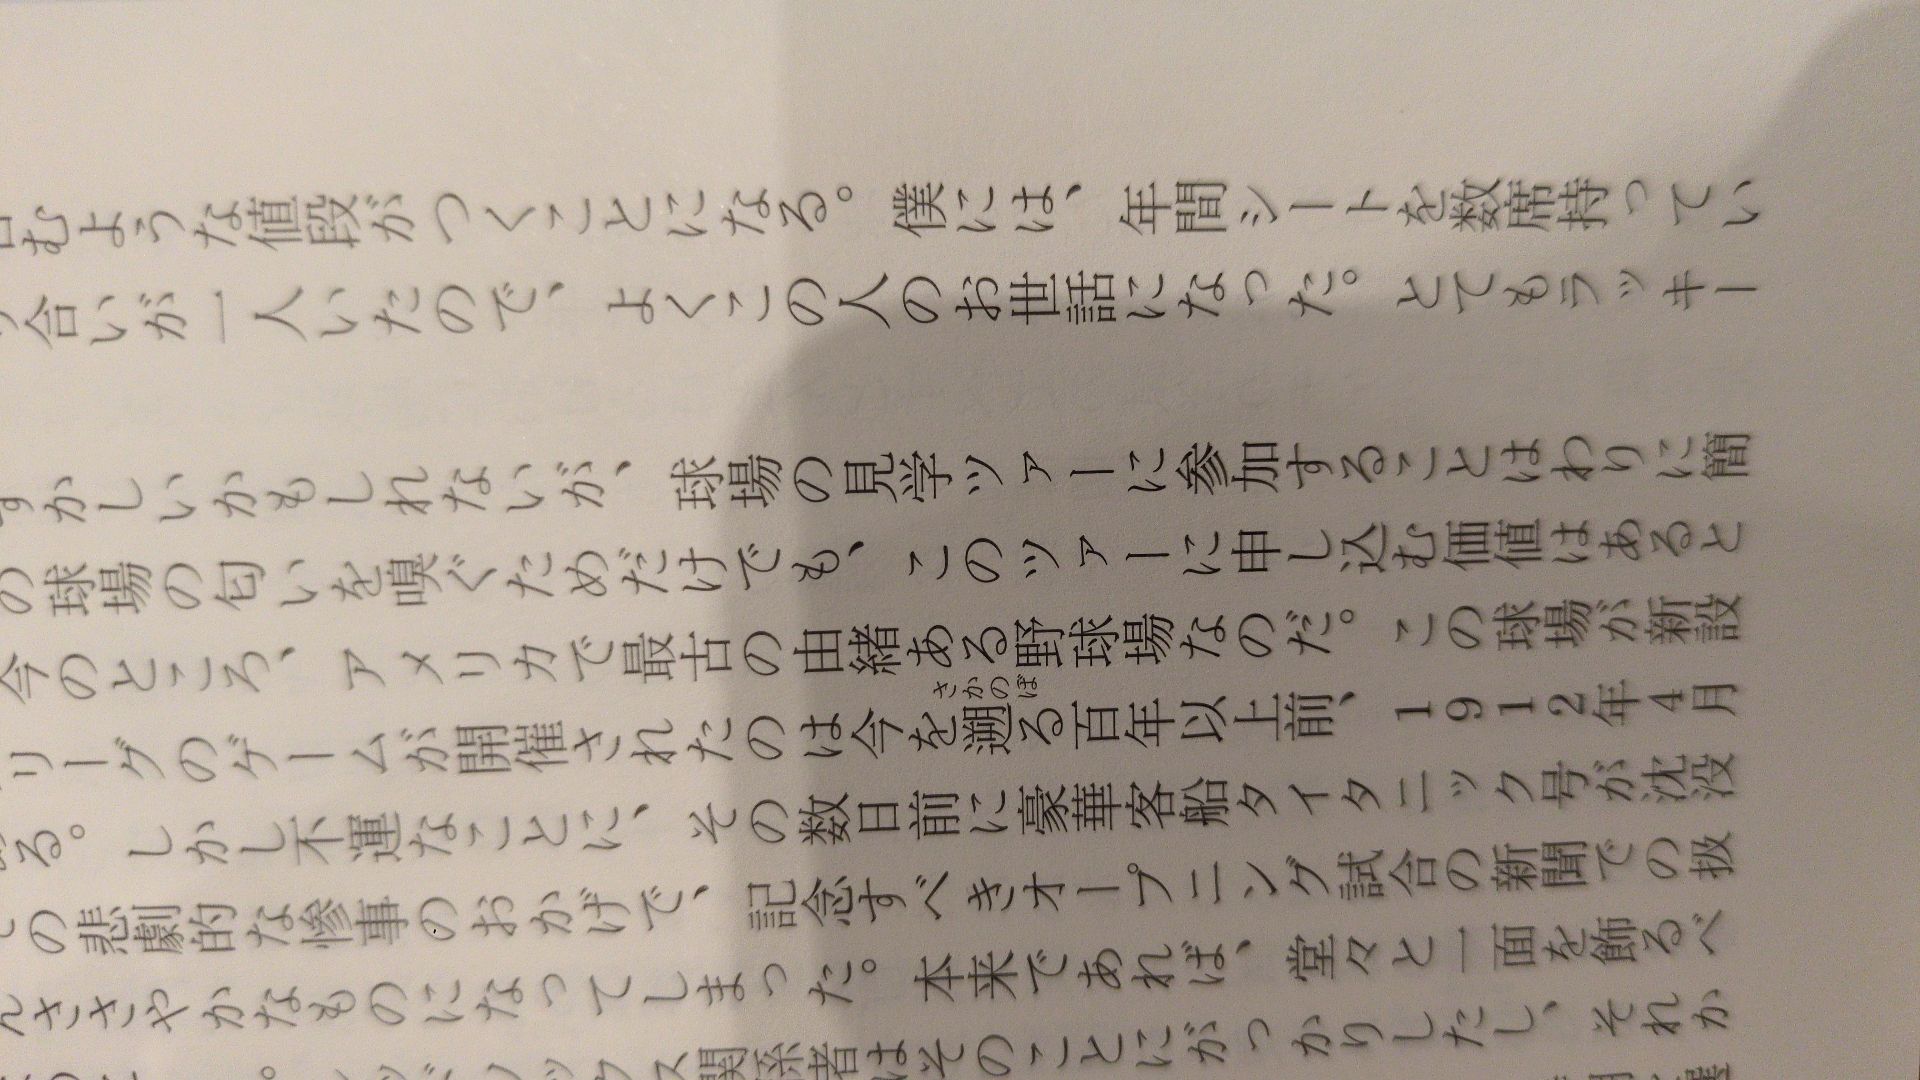 むような値段がつくことになる。僕には、年間シートを数席持ってい
合いが一人いたので、よくこの人のお世話になった。とてもラッキー
かしいかもしれないが、球場の見学ツアーに参加することはわりに簡
の球場の匂いを嗅ぐためだけでも、このツアーに申し込む価値はあると
今のところ、アメリカで最古の由緒ある野球場なのだ。この球場が新設
さかのぼ
リーグのゲームが開催されたのは今を遡る百年以上前、1912年4月
る。しかし不運なことに、その数日前に豪華客船タイタニック号が沈没
の悲劇的な惨事のおかげで、記念すべきオープニング試合の新聞での扱
ささやかなものになってしまった。本来であれば、堂々と一面を飾るべ
ックス関係者はそのことにがっかりしたし、それか